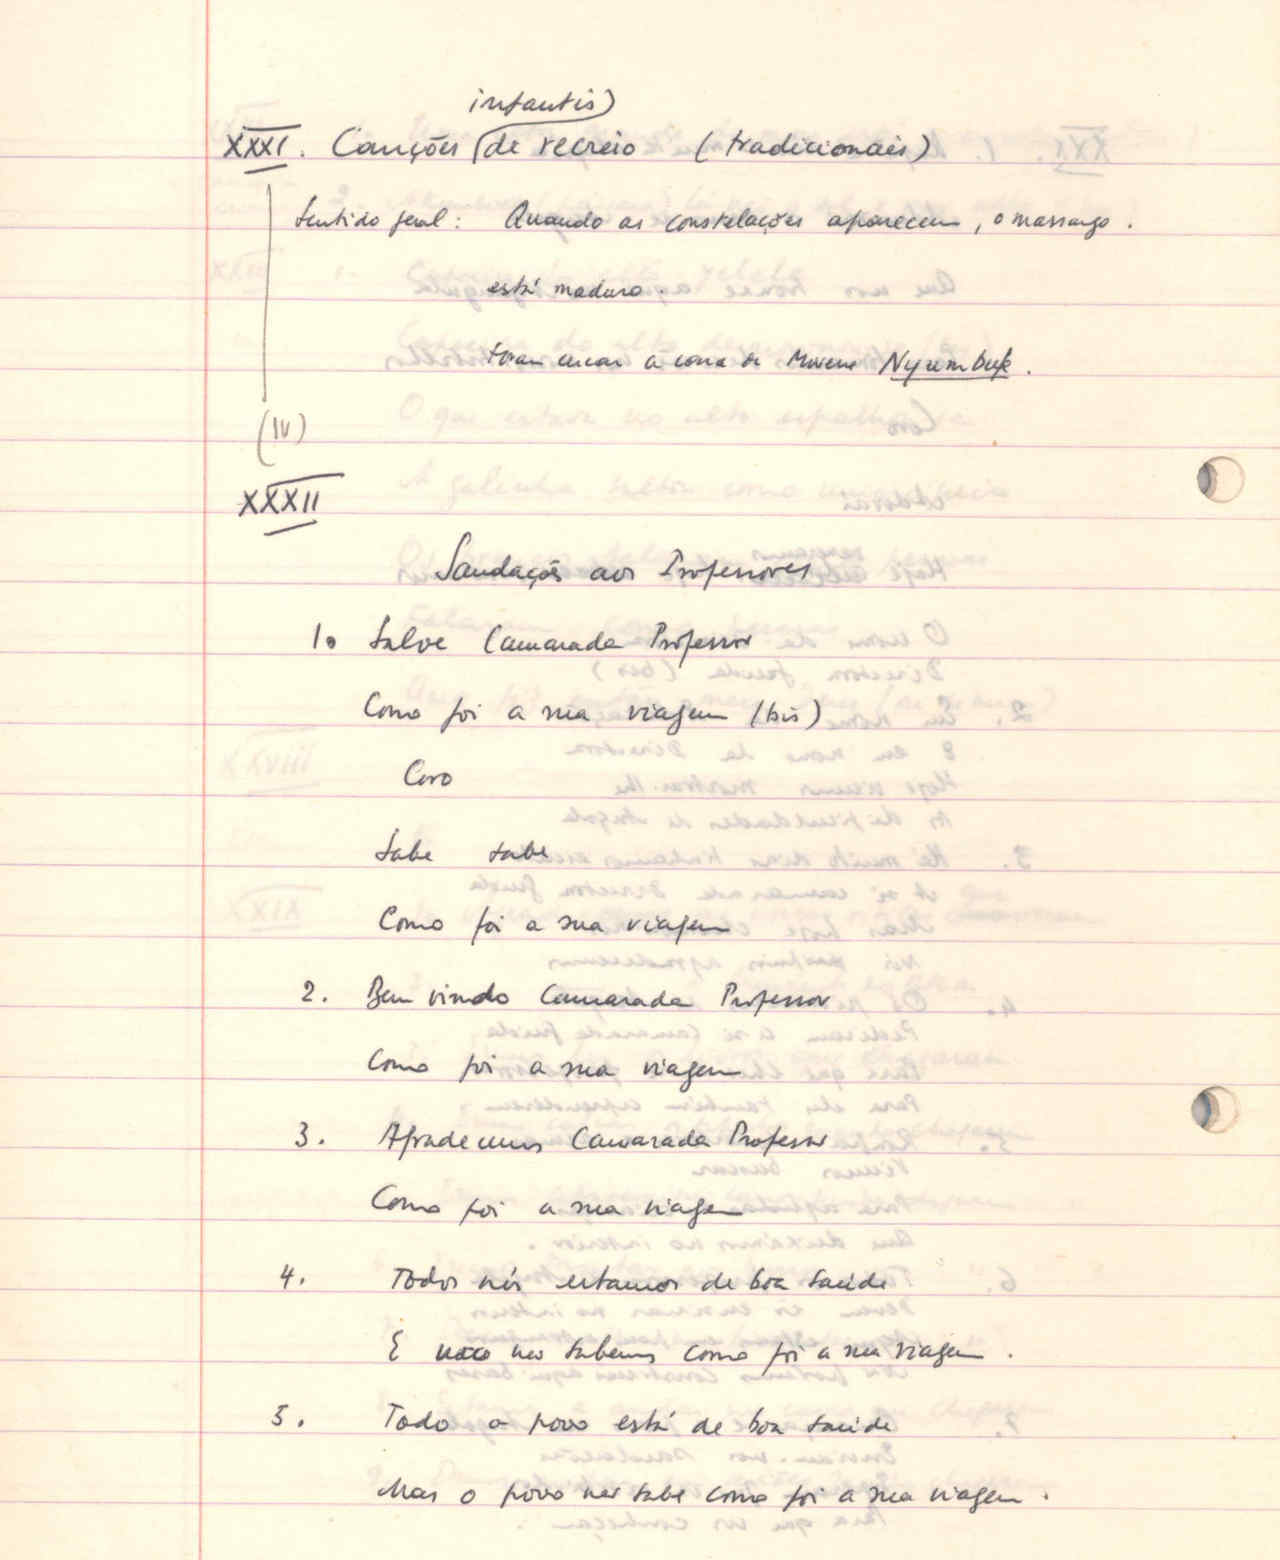 infantis)
XXXI. Canções de recreio (tradicionais)
Sentido geral: Quando as constelações aparecem, o massango.
está maduro.
a coroa de Muene Nyumbuk.
(IV)
XXXII
Saudações aos Professores
1. Salve Camarada Professor
Como foi a sua viagem (bis)
Coro
Salve salve
Como foi a sua viagem
2. Bem vindo Camarada Professor
Como foi a sua viagem
3. Agradecemos Camarada Professor
Como foi a sua viagem
4. Todos nós estamos de boa saúde
E não sabemos como foi a sua viagem.
5. Todo o povo está de boa saúde
Mas o povo não sabe como foi a sua viagem.